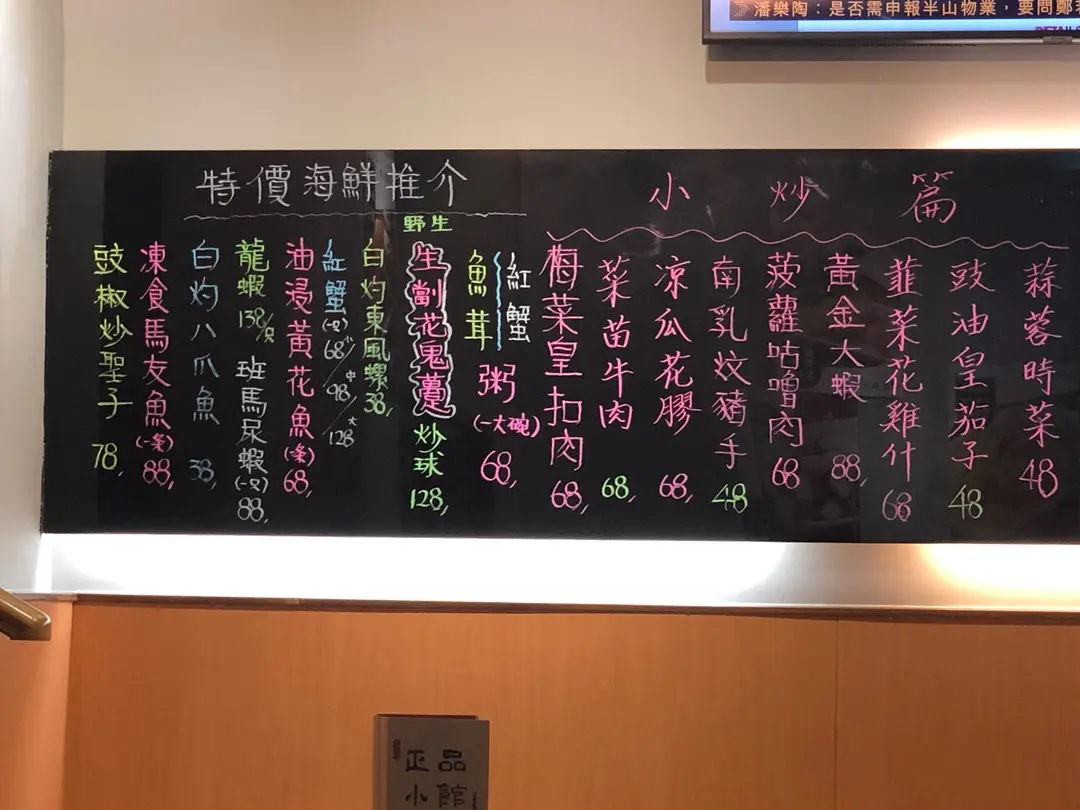 潘樂陶：是否需申報半山物業，要問鄭
小炒篇
蒜蓉時菜 48
豉油皇茄子 48
韮菜花雞什 68
黃金大蝦 88
菠蘿咕嚕肉 68
南乳炆豬手 48
凉瓜花膠 68
菜苗牛肉 68
梅菜皇扣肉 68
特價海鮮推介
紅蟹
魚茸
粥(一大碗) 68
野生
生劏花鬼躉炒球 128
白灼東風螺 38
紅蟹(一只) 68小/98中/128大
油浸黃花魚(一条) 68
龍蝦 138/只
班馬尿蝦(一只) 88
白灼八爪魚 38
凍食馬友魚(一条) 88
豉椒炒聖子 78
正品
小館